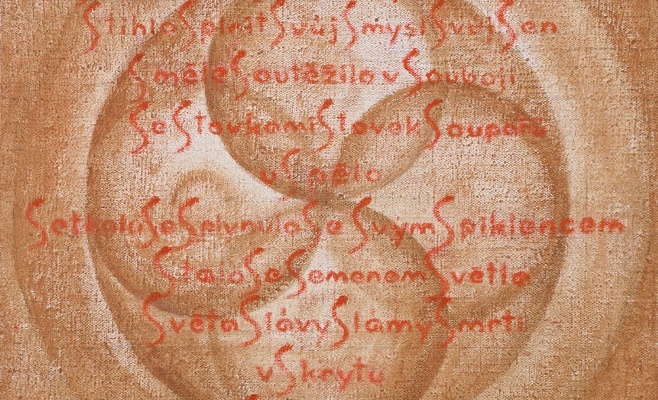 Stihlo Spirit Svůj Smysl Svůj Sen
Směle Soutěžilo v Souboji
Se Stovkami Stovek Soupeřů
uSpělo
Setkalo Se Splynulo Se Svým Spiklencem
Stalo Se Semenem Světla
Světa Slávy Slámy Smrti
v Skrytu